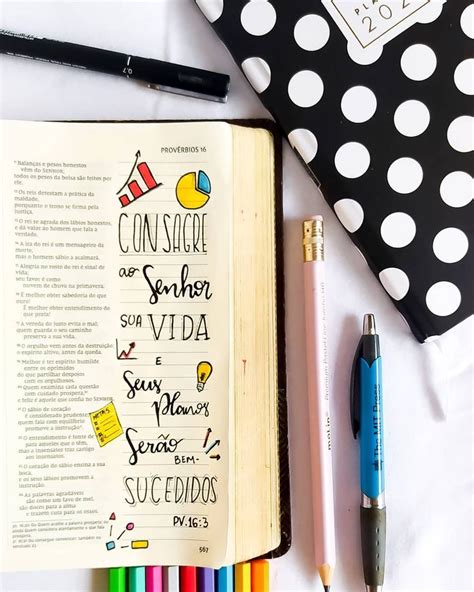 0.7
PLA
202
PROVÉRBIOS 16
¹¹ Balanças e pesos honestos
vêm do SENHOR;
todos os pesos da bolsa são feitos por
ele.
¹² Os reis detestam a prática da
maldade,
porquanto o trono se firma pela
justiça.
¹³ O rei se agrada dos lábios honestos,
e dá valor ao homem que fala a
verdade.
¹⁴ A ira do rei é um mensageiro da
morte,
mas o homem sábio a acalmará.
¹⁵ Alegria no rosto do rei é sinal de
vida;
seu favor é como
nuvem de chuva na primavera.
¹⁶ É melhor obter sabedoria do que
ouro!
É melhor obter entendimento do
que prata!
¹⁷ A vereda do justo evita o mal;
quem guarda o seu caminho
preserva a sua vida.
¹⁸ O orgulho vem antes da destruição;
o espírito altivo, antes da queda.
¹⁹ Melhor é ter espírito humilde
entre os oprimidos
do que partilhar despojos
com os orgulhosos.
²⁰ Quem examina cada questão
com cuidado prospera,
e feliz é aquele que confia no SENHOR.
²¹ O sábio de coração
é considerado prudente;
quem fala com equilíbrio
promove a instrução.
²² O entendimento é fonte de vida
para aqueles que o têm,
mas a insensatez traz castigo
aos insensatos.
²³ O coração do sábio ensina a sua
boca,
e os seus lábios promovem a
instrução.
²⁴ As palavras agradáveis
são como um favo de mel,
são doces para a alma
e trazem cura para os ossos.
CONSAGRE
ao
Senhor
SUA VIDA
E
Seus
planos
METAS
Serão
BEM-
SUCEDIDOS
PV. 16:3
567
The MIT Press